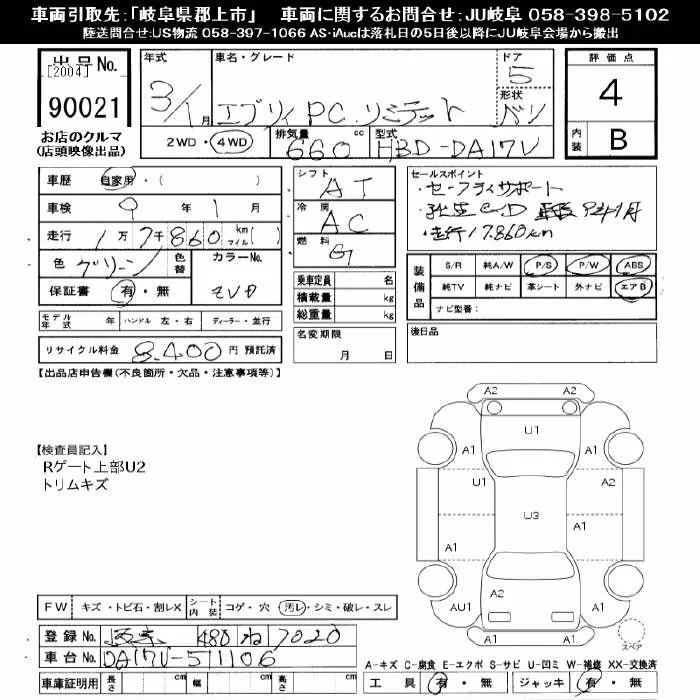 車両引取先:「岐阜県郡上市」 車両に関するお問合せ:JU岐阜 058-398-5102
陸送問合せ:US物流 058-397-1066 AS・iAucは落札日の5日後以降にJU岐阜会場から搬出
出品No.
[2004]
90021
お店のクルマ
(店頭映像出品)
年式 3/1月
車名・グレード エブリィ PC リミテット
ドア 5
形状 バン
2WD・4WD
排気量 660 cc
型式 HBD-DA17V
評価点 4
内装 B
車歴 自家用・( )
車検 9年1月
走行 1万7千860 km マイル( )
色 グリーン 色替 カラーNo.
保証書 有・無 ZVD
シフト AT
冷房 AC
燃料 G
乗車定員 名
積載量 kg
総重量 kg
セールスポイント
・セーフティサポート
・走行17.860km
装備品 S/R 純A/W P/S P/W ABS
純TV 純ナビ 革シート 外ナビ エアB
ナビ型番:
モデル年式 年 ハンドル 左・右 ディーラー・並行
リサイクル料金 8.400 円 預託済
名変期限
月 日
後日品
【出品店申告欄(不良箇所・欠品・注意事項等)】
【検査員記入】
Rゲート上部U2
トリムキズ
A2 A2
U1
A1 A1
U1 A2
U3
A1 A1
AU1 A1
A1 A1
スペア
FW キズ・トビ石・割レX シート内装 コゲ・穴 汚レ・シミ・破レ・スレ
登録No. 480 ね 7020
車台No. DA17V-511106
車庫証明用 長さ cm 幅 cm 高さ cm
A-キズ C-腐食 E-エクボ S-サビ U-凹ミ W-補修 XX-交換済
工具 有・無 ジャッキ 有・無